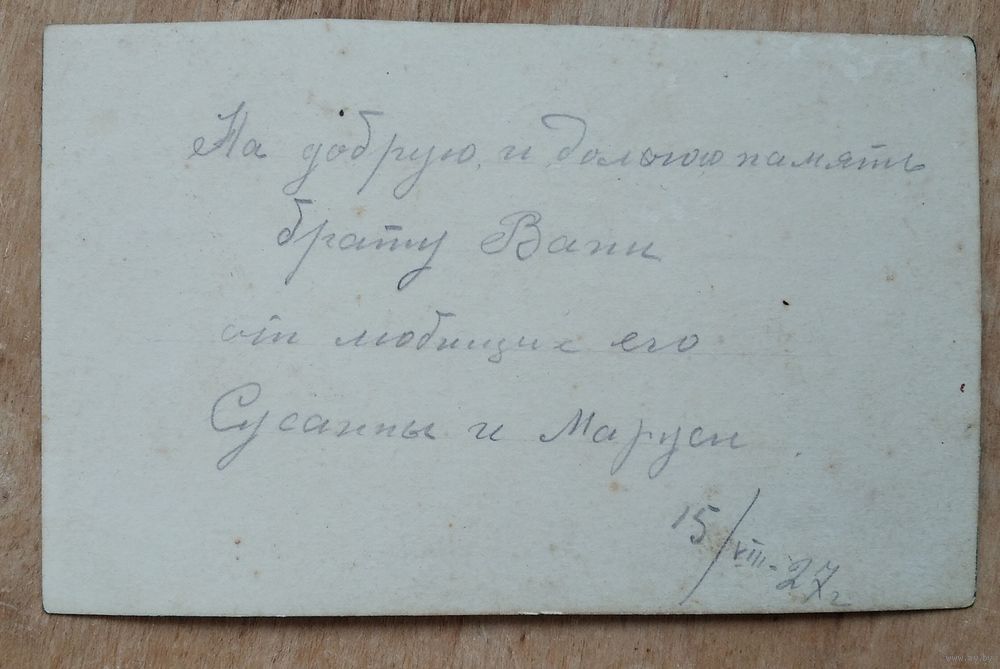 На добрую и долгою память
брату Вани
от любищих его
Сусанны и Маруси
15/VIII-27г
www.ay.by